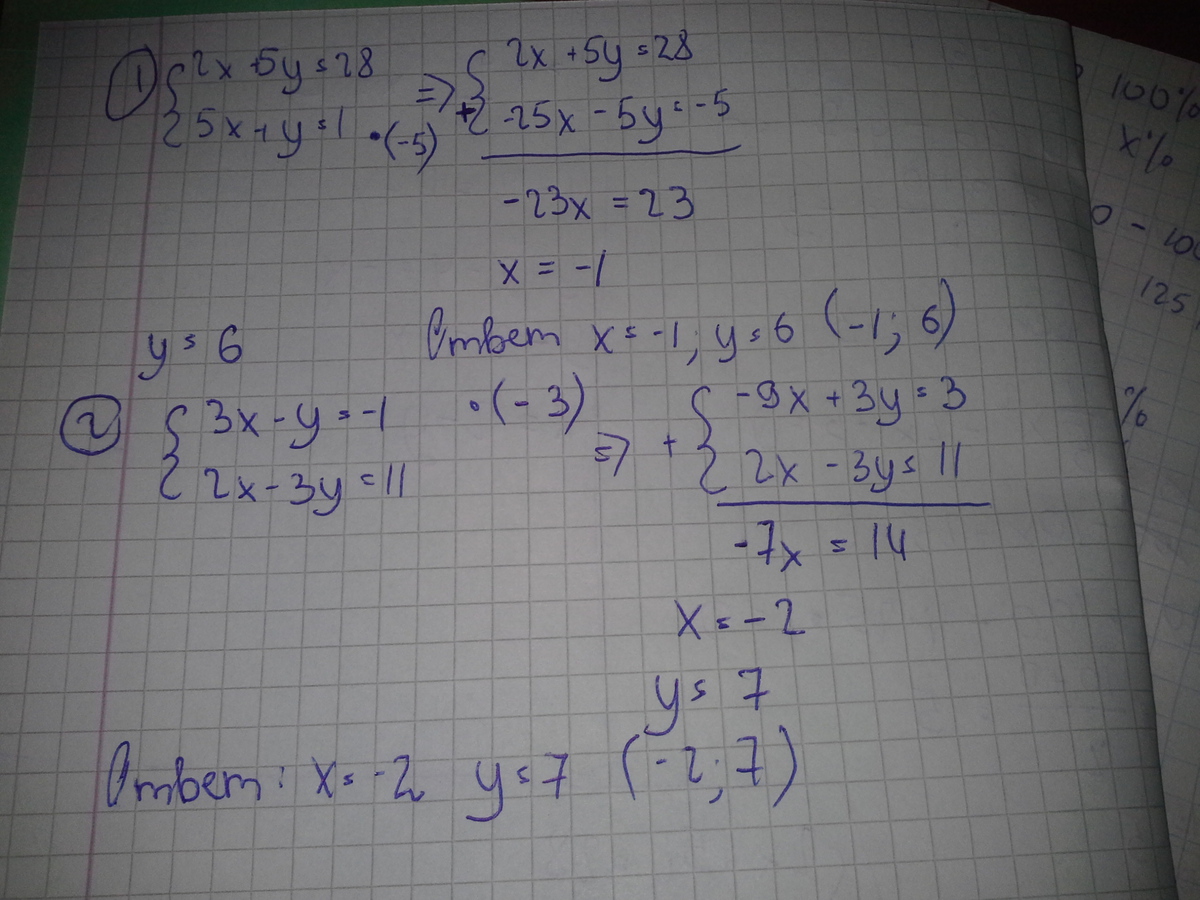 ① { 2x+5y=28 => { 2x+5y=28
5x+y=1 •(-5) + -25x-5y=-5
-23x=23
x=-1
y=6 Ответ x=-1; y=6 (-1; 6)
② { 3x-y=-1 •(-3) => + { -9x+3y=3
2x-3y=11 2x-3y=11
-7x=14
x=-2
y=7
Ответ: x=-2 y=7 (-2; 7)
100%
x%
0 - 100
125
%